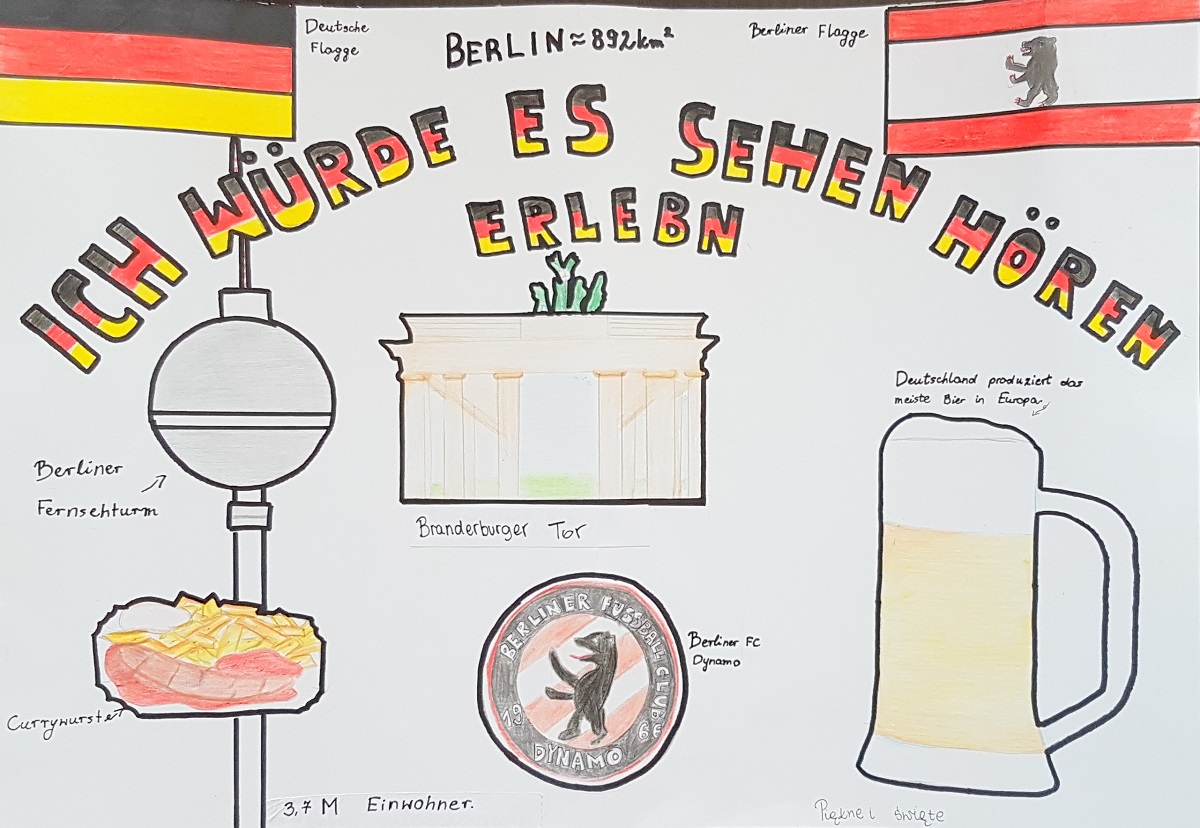 Deutsche
Flagge
BERLIN ≈ 892 km²
Berliner Flagge
ICH WÜRDE ES SEHEN HÖREN
ERLEBN
Deutschland produziert das
meiste Bier in Europa.
Berliner
Fernsehturm
Branderburger Tor
BERLINER FUSSBALL CLUB
1966
DYNAMO
Berliner FC
Dynamo
Currywurste
3,7 M Einwohner.
Piękne i święte